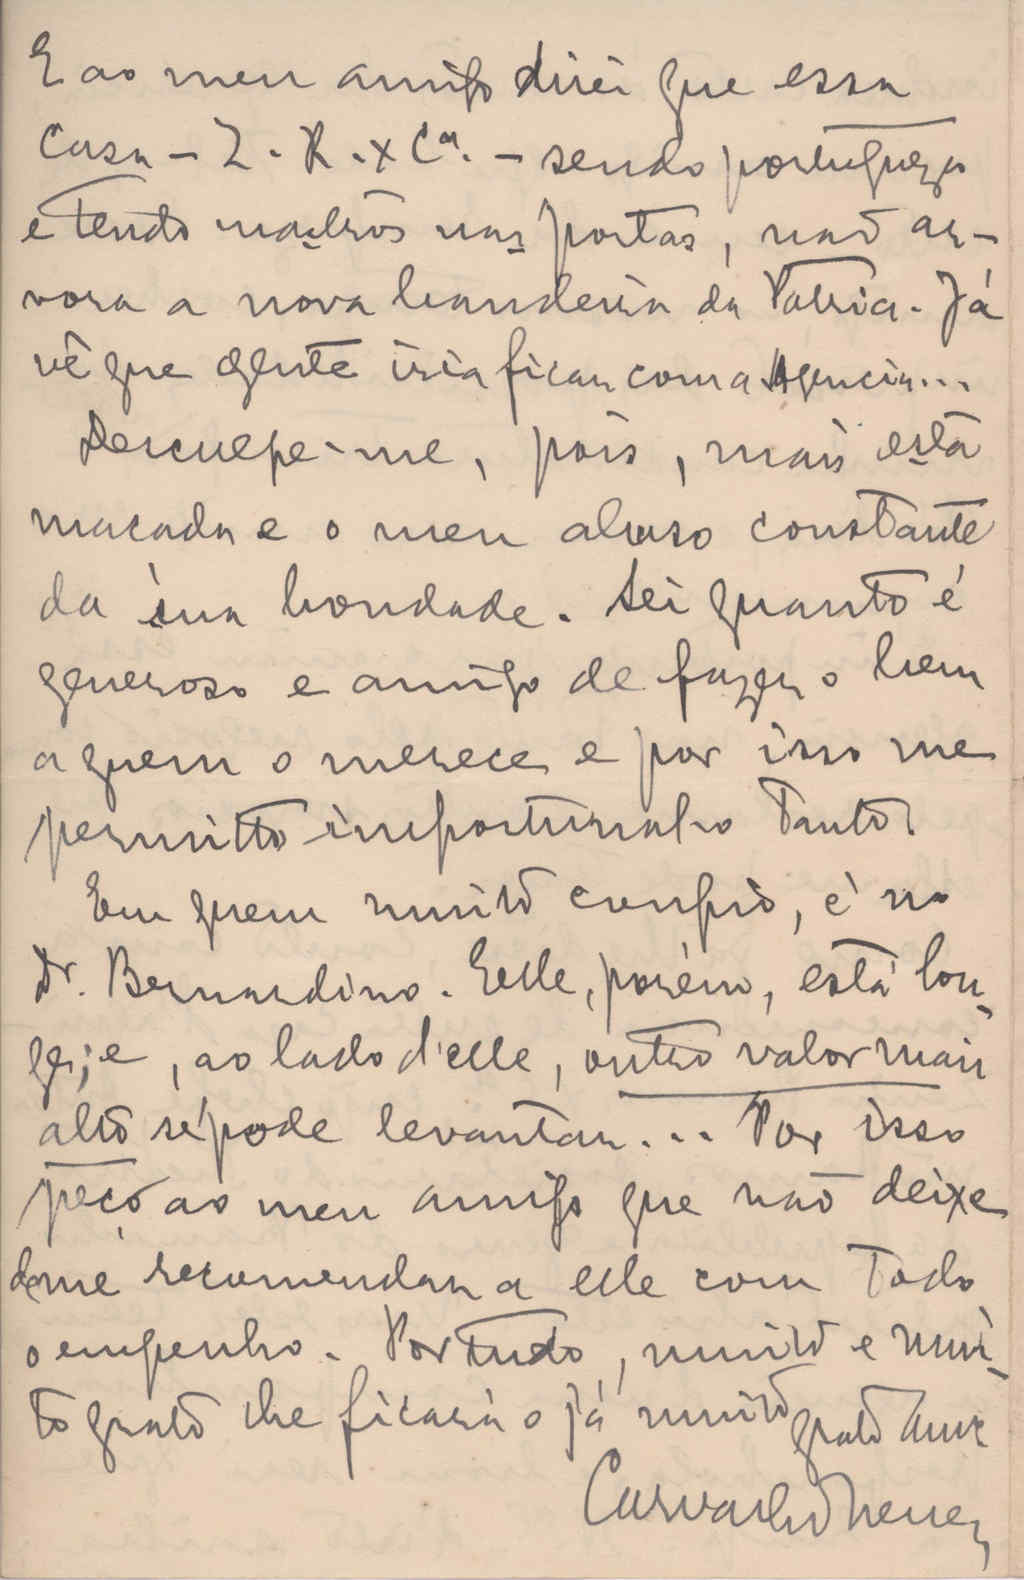 E ao meu amigo direi que essa
Casa – Z. R. & Cª. – sendo portugueza
e tendo mastros nas portas, não ar-
vora a nova bandeira da Patria. Já
vê que gente iria ficar com a Agencia...
Desculpe-me, pois, mais esta
massada e o meu abuso constante
da sua bondade. Sei quanto é
generoso e amigo de fazer o bem
a quem o merece e por isso me
permitto importunal-o tanto.
Em quem muito confio, é no
Dr. Bernardino. Elle, porém, está lon-
ge; e, ao lado d'elle, outro valor mais
alto se pode levantar... Por isso
peço ao meu amigo que não deixe
de me recomendar a elle com todo
o empenho. Por tudo, muito e mui-
to grato lhe ficará o já muito grato amº
Carvalho Neves